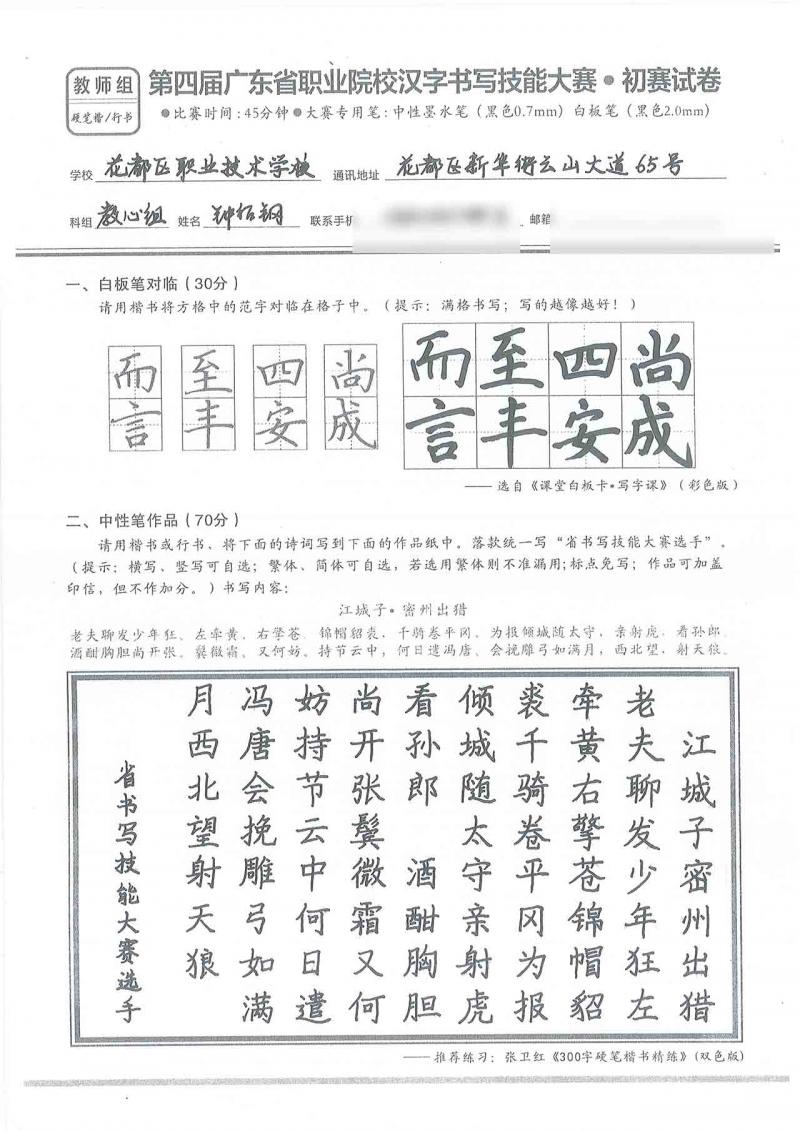 教师组
硬笔楷/行书
第四届广东省职业院校汉字书写技能大赛•初赛试卷
●比赛时间:45分钟●大赛专用笔:中性墨水笔(黑色0.7mm)白板笔(黑色2.0mm)
学校 花都区职业技术学校 通讯地址 花都区新华街云山大道65号
科组 教心组 姓名 联系手机 邮箱
一、白板笔对临(30分)
请用楷书将方格中的范字对临在格子中。(提示:满格书写;写的越像越好!)
而 至 四 尚 而 至 四 尚
言 丰 安 成 言 丰 安 成
——选自《课堂白板卡•写字课》(彩色版)
二、中性笔作品(70分)
请用楷书或行书、将下面的诗词写到下面的作品纸中。落款统一写“省书写技能大赛选手”。
(提示:横写、竖写可自选;繁体、简体可自选,若选用繁体则不准漏用;标点免写;作品可加盖
印信,但不作加分。)书写内容:
江城子•密州出猎
老夫聊发少年狂、左牵黄,右擎苍、锦帽貂裘,千骑卷平冈。为报倾城随太守,亲射虎,看孙郎。
酒酣胸胆尚开张。鬓微霜,又何妨。持节云中,何日遣冯唐。会挽雕弓如满月,西北望,射天狼。
江城子密州出猎
老夫聊发少年狂左
牵黄右擎苍锦帽貂
裘千骑卷平冈为报
倾城随太守亲射虎
看孙郎 酒酣胸胆
尚开张鬓微霜又何
妨持节云中何日遣
冯唐会挽雕弓如满
月西北望射天狼
省书写技能大赛选手
——推荐练习:张卫红《300字硬笔楷书精练》(双色版)